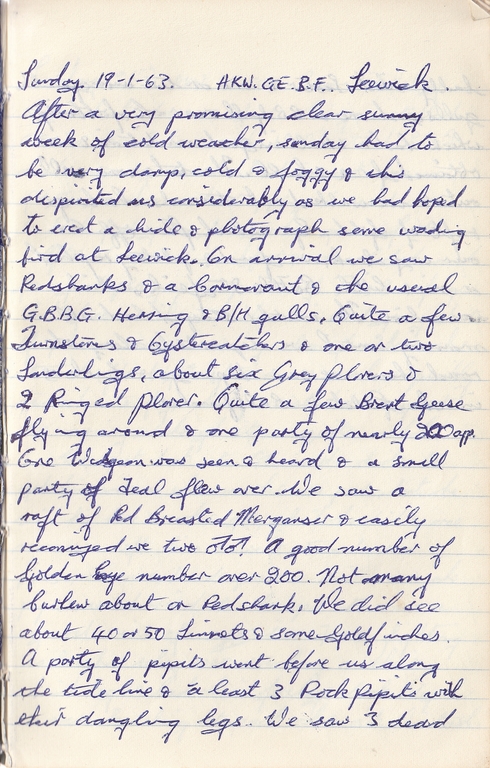 Sunday. 19-1-63. AKW. GE. B.F. Leewick.
After a very promising clear sunny
week of cold weather, sunday had to
be very damp, cold & foggy & this
dispirited us considerably as we had hoped
to erect a hide & photograph some wading
bird at Leewick. On arrival we saw
Redshanks & a Cormorant & the usual
G.B.B.G. Herring & B/H gulls. Quite a few
Turnstones & Oystercatchers & one or two
Sanderlings, about six Grey Plovers &
2 Ringed Plover. Quite a few Brent Geese
flying around & one party of nearly 200 app.
One Widgeon was seen & heard & a small
party of Teal flew over. We saw a
raft of Red Breasted Merganser & easily
recognized two ♂♂! A good number of
Golden Eye number over 200. Not many
Curlew about or Redshank. We did see
about 40 or 50 Linnets & some Goldfinches.
A party of pipits went before us along
the tide line & a least 3 Rock Pipits with
their dangling legs. We saw 3 dead